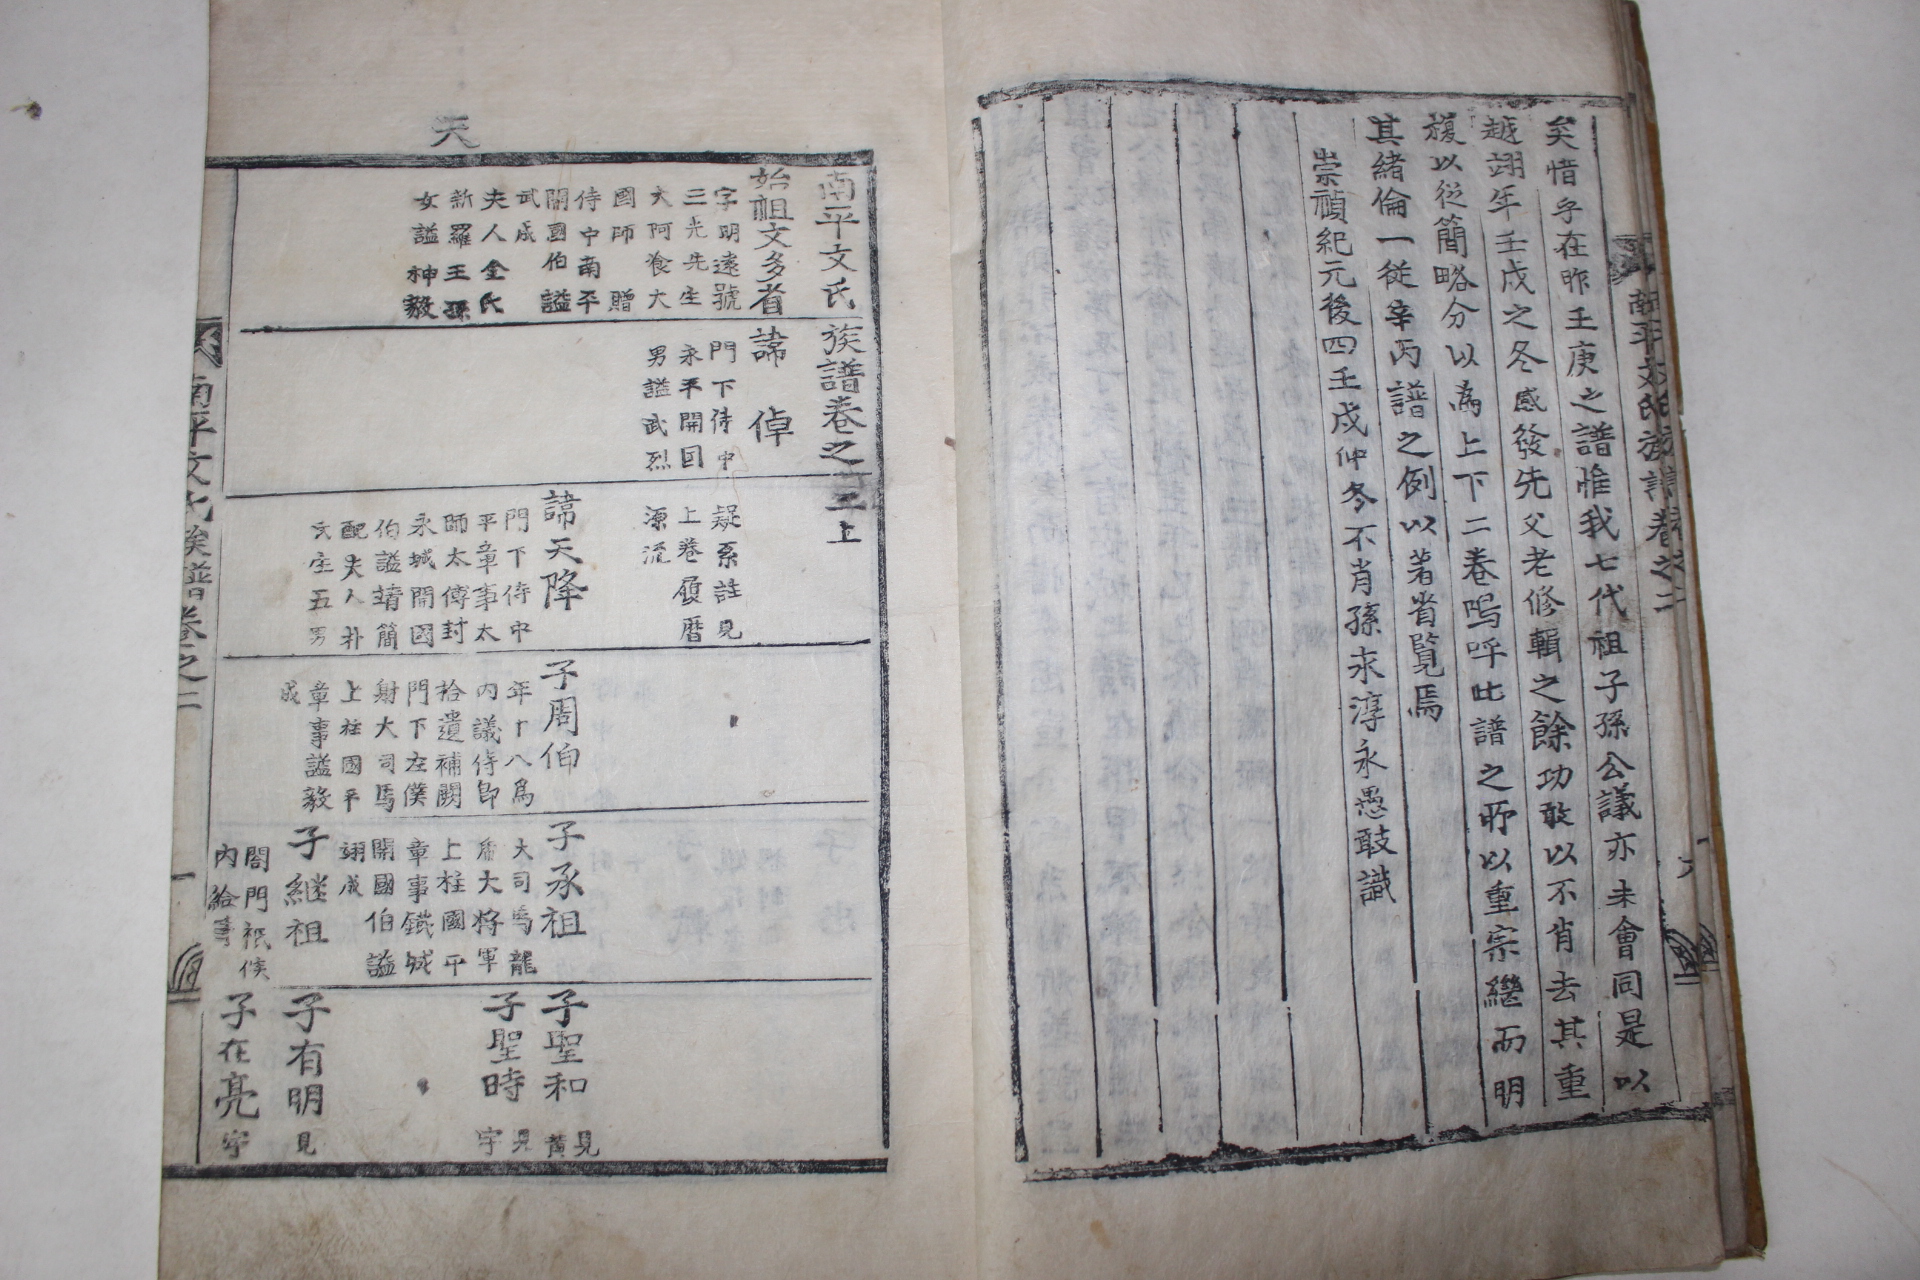 南平文氏族譜卷之二
矣惜乎在昨壬庚之譜惟我七代祖子孫公議亦未會同是以
越翊年壬戌之冬感發先父老修輯之餘功敢以不肖去其重
複以從簡略分以為上下二卷嗚呼此譜之所以重宗繼而明
其緒倫一從辛丙譜之例以著省覽焉
崇禎紀元後四壬戌仲冬不肖孫永淳永愚敢識
天
南平文氏族譜卷之二上
始祖文多省
字明遠號
三光先生
大阿飡大
國師贈
侍中南平
開國伯謚
武成
夫人金氏
新羅王孫
女謚神毅
諱倬
門下侍中
永平開囯
男謚武烈
疑系註見
上卷履曆
源流
諱天降
門下侍中
平章事太
師太傅封
永城開國
伯謚靖簡
配夫人朴
氏生五男
子周伯
年十八為
內議侍郎
拾遺補闕
門下左僕
射大司馬
上柱國平
章事謚毅
成
子承祖
大司馬龍
虎大將軍
上柱國平
章事鐵城
開國伯謚
翊成
子繼祖
閤門祗候
內給事
子聖和
見
黃
子聖時
見
宇
子有明
見
子在亮
宇
南平文氏族譜卷之二
一